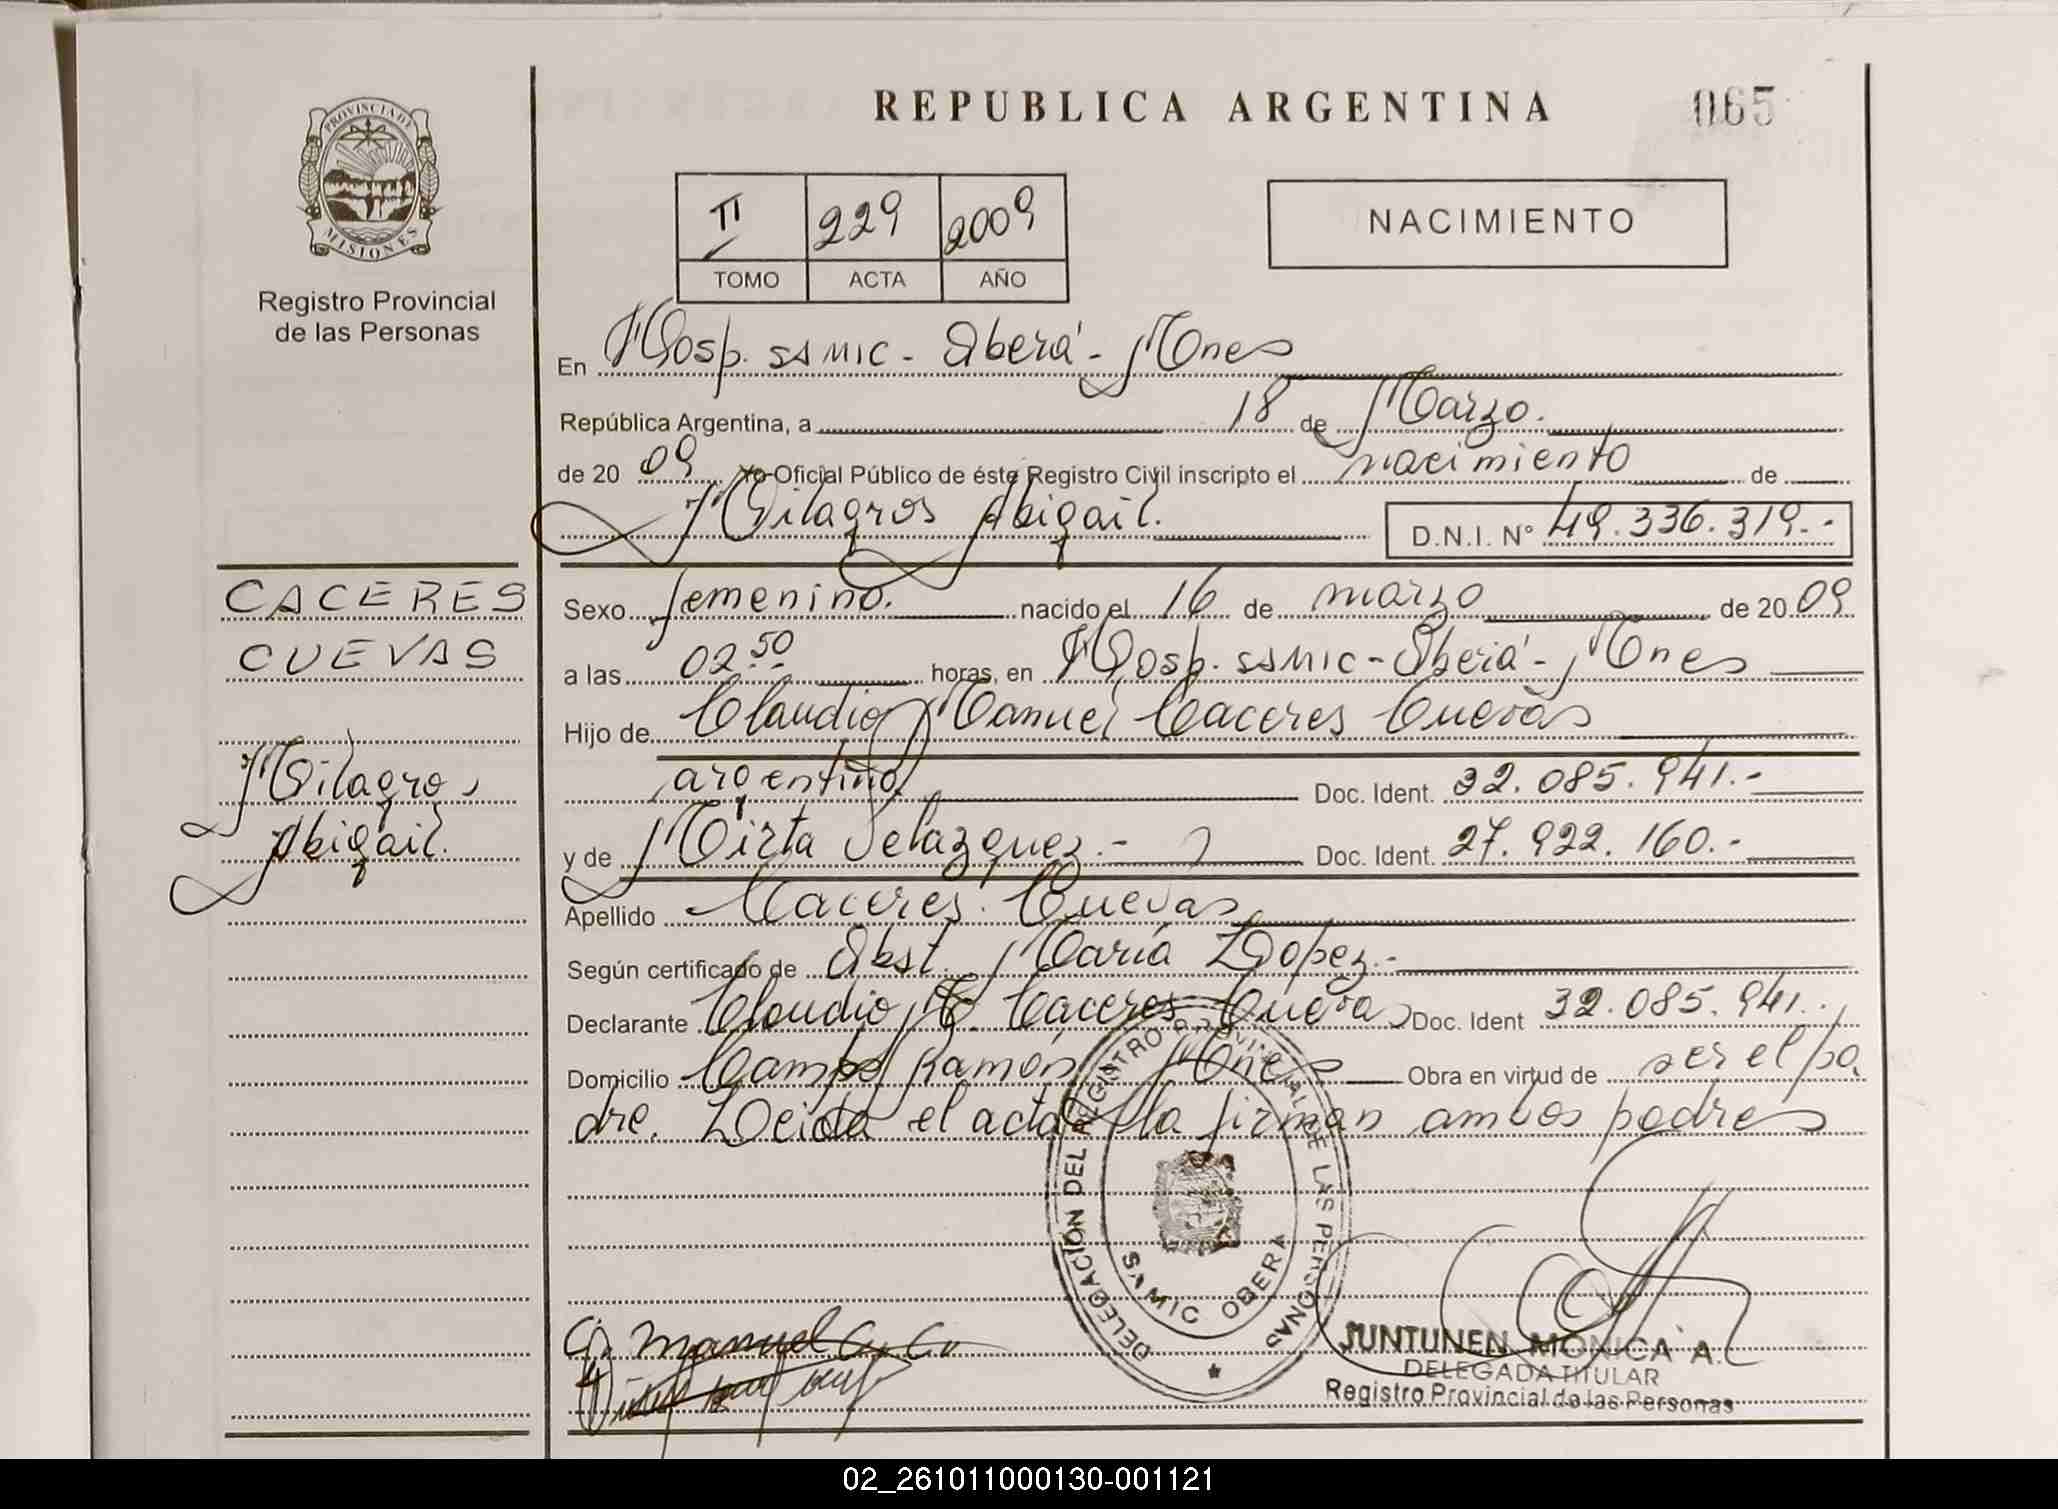 REPUBLICA ARGENTINA
065
PROVINCIA DE
MISIONES
Registro Provincial
de las Personas
II 229 2009
TOMO ACTA AÑO
NACIMIENTO
En Hosp. SAMIC - Oberá - Mnes
República Argentina, a 18 de Marzo.
de 20 09 Yo Oficial Público de éste Registro Civil inscripto el nacimiento de
Milagros Abigail. D.N.I. N° 49.336.319.-
CACERES
CUEVAS
Milagros
Abigail.
Sexo femenino. nacido el 16 de marzo de 20 09
a las 02.50 horas, en Hosp. SAMIC - Oberá - Mnes
Hijo de Claudio Manuel Caceres Cuevas
argentino Doc. Ident. 32.085.941.-
y de Mirta Velazquez.- Doc. Ident. 27.922.160.-
Apellido Caceres Cuevas
Según certificado de Obst. María Lopez.-
Declarante Claudio M. Caceres Cuevas Doc. Ident 32.085.941.-
Domicilio Campo Ramón Mnes Obra en virtud de ser el pa
dre. Leida el acta la firman ambos padres
DELEGACIÓN DEL REGISTRO PROVINCIAL DE LAS PERSONAS
SAMIC OBERA
C. Manuel C. C.
JUNTUNEN MONICA A.
DELEGADA TITULAR
Registro Provincial de las Personas
02_261011000130-001121